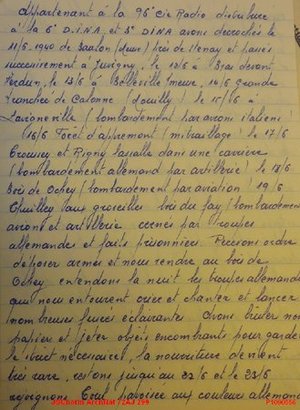 appartenant à la 96e Cie Radio distribuée
à la 6e D.I.N.A. et 5e DINA avons décrochés le
11/6 1940 de Baalon (Meuse) près de Stenay et passés
successivement à Juvigny, le 12/6 à Bras devant
Verdun, le 13/6 à Belleville (Meuse, 14/6 Grande
Tranchée de Calonne (Souilly) le 15/6 à
Savigneville (bombardement par avions italiens)
(16/6 Forêt d'apremont (mitraillage) le 17/6
Crousey et Rigny lasalle dans une carrière
(bombardement allemand par artillerie) le 18/6
Bois de Ochey (bombardement par aviation) 19/6
Thuilley aux groseilles bois du fay (bombardement
avions et artillerie cernés par troupes
allemandes et faits prisonniers. Recevons ordre
déposer armes et nous rendre au bois de
Ochey, entendons la nuit les troupes allemandes
qui nous entourent crier et chanter et lancer
nombreuses fusées éclairantes. Avons brûler nos
papiers et jeter objets encombrants pour garder
le strict nécessaire, la nourriture devient
très rare, restons jusqu'au 22/6 et le 23/6
rejoignons Toul pavoisée aux couleurs allemandes
JJChotin Archilat 72AJ 299
P1090556